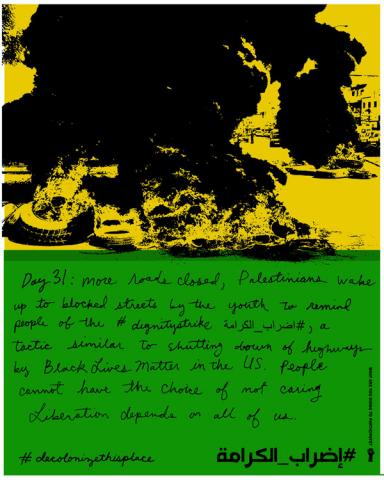 Day 31: more roads closed, Palestinians wake
up to blocked streets by the youth to remind
people of the #dignitystrike #اضراب_الكرامة, a
tactic similar to shutting down of highways
by Black Lives Matter in the US. People
cannot have the choice of not caring
Liberation depends on all of us.
#decolonizethisplace
#إضراب_الكرامة
WHAT ARE YOU DOING TO PARTICIPATE?